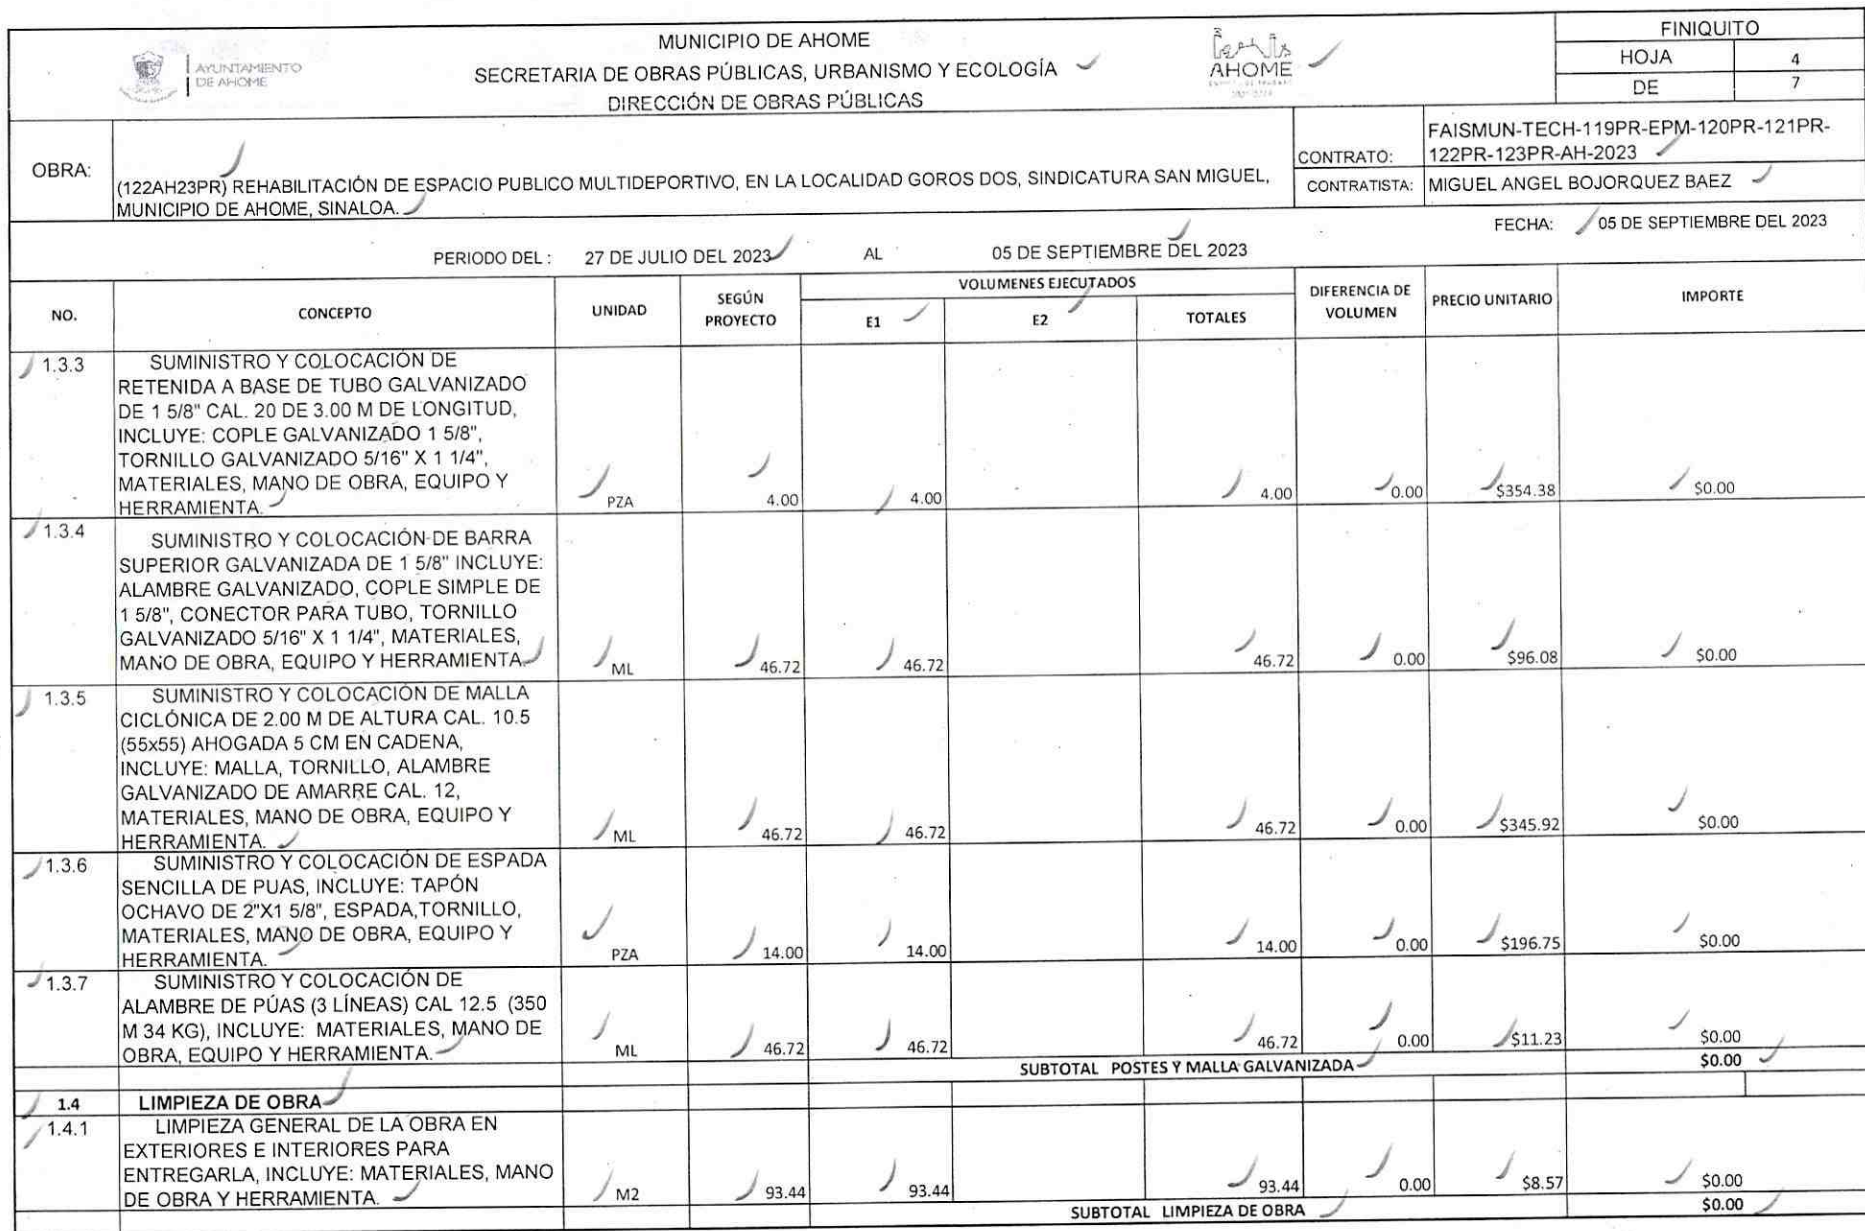 AYUNTAMIENTO
DE AHOME
MUNICIPIO DE AHOME
SECRETARIA DE OBRAS PÚBLICAS, URBANISMO Y ECOLOGÍA
DIRECCIÓN DE OBRAS PÚBLICAS
AHOME
FINIQUITO
HOJA 4
DE 7
OBRA:
(122AH23PR) REHABILITACIÓN DE ESPACIO PUBLICO MULTIDEPORTIVO, EN LA LOCALIDAD GOROS DOS, SINDICATURA SAN MIGUEL,
MUNICIPIO DE AHOME, SINALOA.
CONTRATO:
FAISMUN-TECH-119PR-EPM-120PR-121PR-
122PR-123PR-AH-2023
CONTRATISTA: MIGUEL ANGEL BOJORQUEZ BAEZ
FECHA: 05 DE SEPTIEMBRE DEL 2023
PERIODO DEL : 27 DE JULIO DEL 2023 AL 05 DE SEPTIEMBRE DEL 2023
NO. CONCEPTO UNIDAD SEGÚN PROYECTO VOLUMENES EJECUTADOS DIFERENCIA DE VOLUMEN PRECIO UNITARIO IMPORTE
E1 E2 TOTALES
1.3.3 SUMINISTRO Y COLOCACIÓN DE
RETENIDA A BASE DE TUBO GALVANIZADO
DE 1 5/8" CAL. 20 DE 3.00 M DE LONGITUD,
INCLUYE: COPLE GALVANIZADO 1 5/8",
TORNILLO GALVANIZADO 5/16" X 1 1/4",
MATERIALES, MANO DE OBRA, EQUIPO Y
HERRAMIENTA. PZA 4.00 4.00 4.00 0.00 $354.38 $0.00
1.3.4 SUMINISTRO Y COLOCACIÓN DE BARRA
SUPERIOR GALVANIZADA DE 1 5/8" INCLUYE:
ALAMBRE GALVANIZADO, COPLE SIMPLE DE
1 5/8", CONECTOR PARA TUBO, TORNILLO
GALVANIZADO 5/16" X 1 1/4", MATERIALES,
MANO DE OBRA, EQUIPO Y HERRAMIENTA. ML 46.72 46.72 46.72 0.00 $96.08 $0.00
1.3.5 SUMINISTRO Y COLOCACIÓN DE MALLA
CICLÓNICA DE 2.00 M DE ALTURA CAL. 10.5
(55x55) AHOGADA 5 CM EN CADENA,
INCLUYE: MALLA, TORNILLO, ALAMBRE
GALVANIZADO DE AMARRE CAL. 12,
MATERIALES, MANO DE OBRA, EQUIPO Y
HERRAMIENTA. ML 46.72 46.72 46.72 0.00 $345.92 $0.00
1.3.6 SUMINISTRO Y COLOCACIÓN DE ESPADA
SENCILLA DE PUAS, INCLUYE: TAPÓN
OCHAVO DE 2"X1 5/8", ESPADA,TORNILLO,
MATERIALES, MANO DE OBRA, EQUIPO Y
HERRAMIENTA. PZA 14.00 14.00 14.00 0.00 $196.75 $0.00
1.3.7 SUMINISTRO Y COLOCACIÓN DE
ALAMBRE DE PÚAS (3 LÍNEAS) CAL 12.5 (350
M 34 KG), INCLUYE: MATERIALES, MANO DE
OBRA, EQUIPO Y HERRAMIENTA. ML 46.72 46.72 46.72 0.00 $11.23 $0.00
SUBTOTAL POSTES Y MALLA GALVANIZADA $0.00
1.4 LIMPIEZA DE OBRA
1.4.1 LIMPIEZA GENERAL DE LA OBRA EN
EXTERIORES E INTERIORES PARA
ENTREGARLA, INCLUYE: MATERIALES, MANO
DE OBRA Y HERRAMIENTA. M2 93.44 93.44 93.44 0.00 $8.57 $0.00
SUBTOTAL LIMPIEZA DE OBRA $0.00